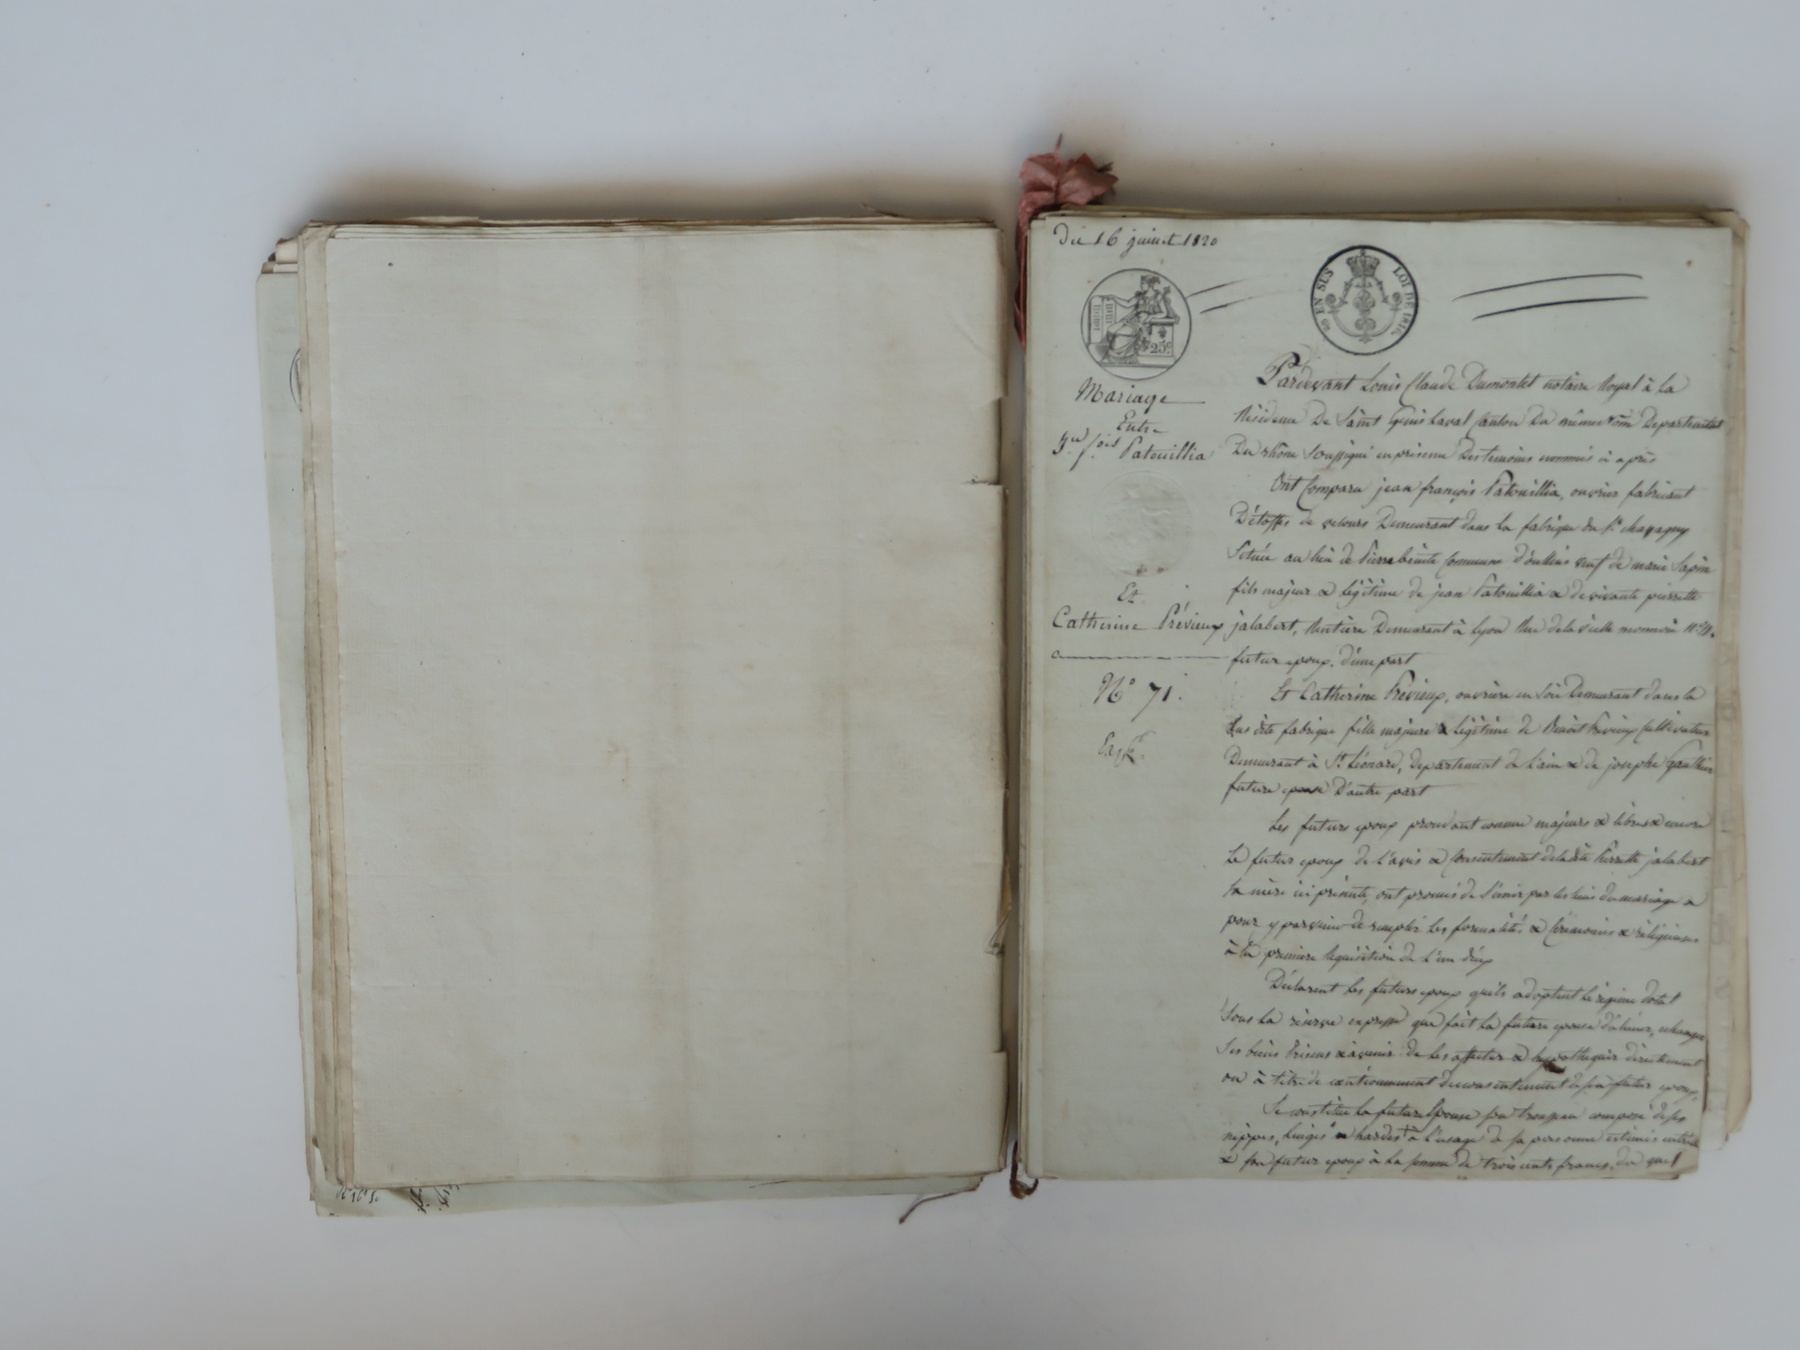 Du 16 juillet 1820
EN SUS
LOI DE 1816
25c
Mariage
Entre
Jn. fois Patouillia
Et
Catherine Prévieux
No 71.
Pardevant Louis Claude Dumontet notaire Royal à la
Résidence De Saint Genis Laval Canton Du même nom Departement
Du rhône Soussigné en présence Des temoins nommés ci après
Ont Comparu jean françois Patouillia, ouvrier fabricant
D'étoffes de velours Demeurant dans la fabrique du Sr. chavagny
Située au lieu de Pierre bénite Commune d'oullins veuf de marie Sapin
fils majeur & légitime de jean Patouillia & de vivante pierrette
jalabert, Rentière Demeurant à Lyon Rue de la vieille monnoie No
futur epoux. d'une part
Et Catherine Prévieux, ouvrière en Soie Demeurant dans la
Sus dite fabrique fille majeure & légitime de Benoit Prévieux Cultivateur
Demeurant à St. Léonard, departement de L'ain & de josephe Gauthier
future epouse D'autre part
Les futurs epoux procédant comme majeurs & libres & encore
Le futur epoux de L'avis & Consentement de la dite Pierrette jalabert
Sa mère ici présente, ont promis de S'unir par les liens du mariage &
pour y parvenir de remplir les formalités & Cérémonies & réligieuses
à la première Requisition de L'un d'eux
Déclarent les futurs epoux qu'ils adoptent le régime dotal
Sous la réserve expresse que fait la future epouse d'aliéner, echanger
Ses biens Présens & à venir de les affecter & hypothequer directement
ou à titre de cautionnement du consentement de son futur epoux.
Se constitue la future Epouse son trousseau composé de ses
nippes, Linges & hardes à l'usage de sa personne estimés entr'elle
& son futur epoux à la somme de trois cents francs, du quel